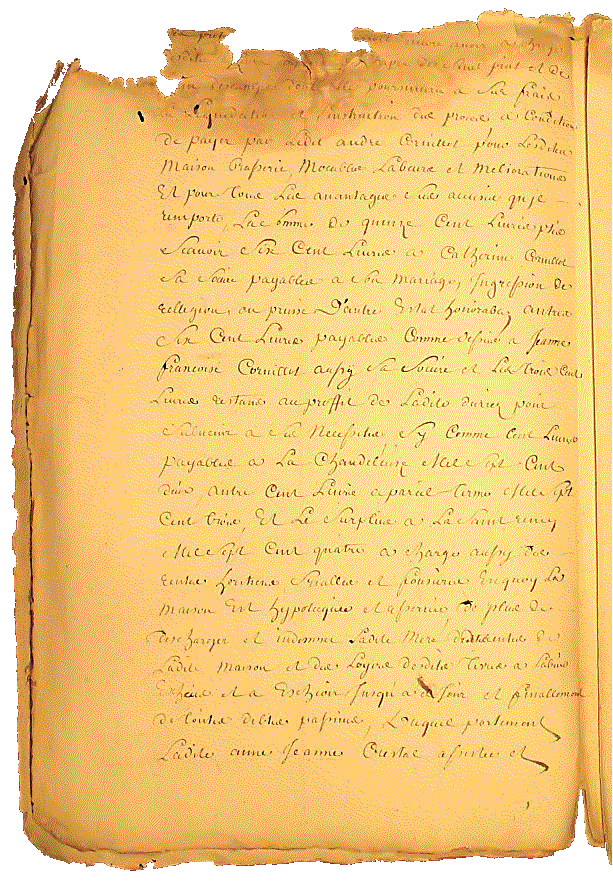 poursuivra a ses frais
La Liquidation et Instruction des proces a Condition
de payer par Ledit andre Cornillot pour Lesdites
Maison Brasserie, Meubles Labeurs et meliorations
Et pour tous Les avantages
remporte, La somme de quinze Cent Livres
Scavoir Six Cent Livres a Catherine Cornillot
Sa Soeure payables a son mariage, Ingression de
relligion, ou prinse D'autre Estat honorable, autres
Six Cent Livres payables Comme dessus a Jeanne
francoise Cornillot aussy Sa Soeure et Les trois Cent
Livres restans au proffit de Ladite pour
Subvenir a Ses Necessites, Sy Comme Cent Livres
payables a La Chandeleuze Mil Sept Cent
deux, autre Cent Livres a pareil terme Mil Sept
Cent trois, Et Le Surplus a La Saint remy
Mil Sept Cent quatre a charge aussy des
rentes fonsieres Enquoy La
maison Est hypotecquée et asservie, de plus de
descharger et indemner Ladite Mere, des rentes de
Ladite maison et des Loyers desdites terres a Labeur
Escheus et a Escheoir Jusqu'a ce Jour et finallement
de toutes debtes passives, Lequel portement
Ladite anne Jeanne assistee et